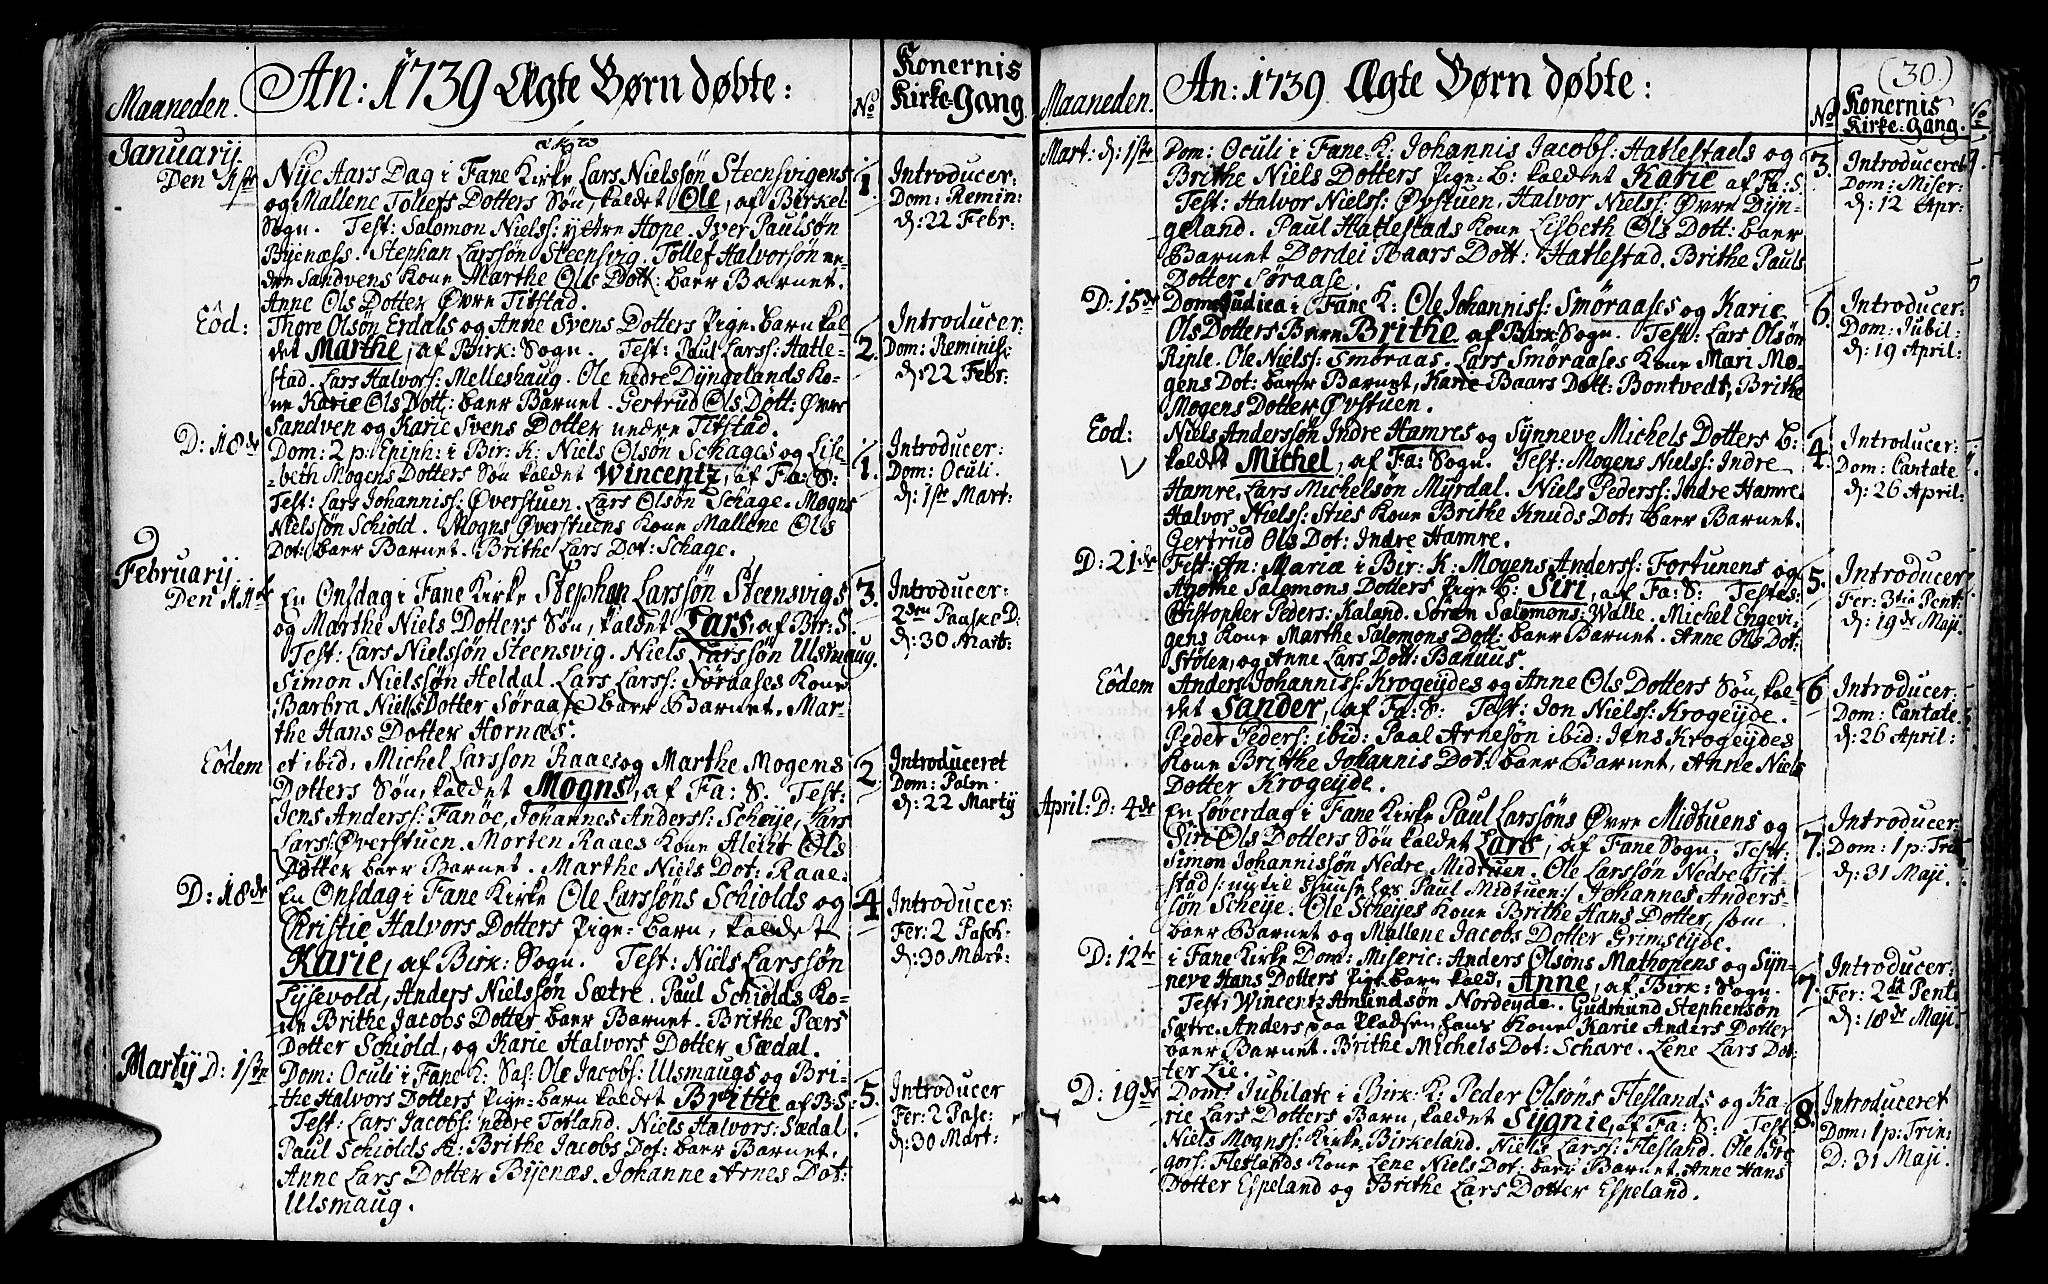 Maaneden.
An: 1739 Ægte Børn døbte:
No
Konernis
Kirke-Gang
Januarij
Den 1ste
Nye Aars Dag i Fane Kirke Lars Nielssøn Steensvigens
og Mallene Tollefs Dotters Søn, kaldet Ole, af Birkel-
Sogn. Test: Salomon Nielss: yttre Hope. Iver Paulsøn
Bijenæss. Stephan Larssøn Steensvig. Tollef Halvorsøn ne-
dre Sandvens Kone Marthe Ols Dott: baer Barnet.
Anne Ols Dotter Øvre Titstad.
1.
Introducer:
Dom: Remin:
d: 22 Febr:
Eôd:
Thore Olsøn Erdals og Anne Svens Dotters Pige-barn kal-
det Marthe, af Birk: Sogn. Test: Paul Larss: Hatle-
stad. Lars Halvors: Melleshaug. Ole nedre Dÿngelands Ko-
ne Karie Ols Dott: baer Barnet. Gertrud Ols Dott: Øvre
Sandven og Karie Svens Dotter nedre Titstad.
2.
Introducer:
Dom: Reminis:
d: 22 Febr:
D: 18de
Dom: 2 p: Epiph: i Bir: K: Niels Olsøn Schages og Lise-
beth Mogens Dotters Søn kaldet Wincentz, af Fa: S:
Test: Lars Johanniss: Øverstuen. Lars Olsøn Schage. Mogns
Nielssøn Schiold. Mogns Øverstuens Kone Mallene Ols
Dot: baer Barnet. Brithe Lars Dot: Schage.
1.
Introducer:
Dom: Oculi.
d: 1ste Mart:
Februarij
Den 11te
En Onsdag i Fane Kirke Stephan Larssøn Steensvigs
og Marthe Niels Dotters Søn, kaldet Lars, af Bir: S.
Test: Lars Nielssøn Steensvig. Niels Larssøn Ulsmaug.
Simon Nielssøn Heldal. Lars Larss: Søraases Kone
Barbra Niels Dotter Søraase baer Barnet. Mar-
the Hans Dotter Hornæs.
3.
Introducer:
2den Paaske D:
d: 30 Marts:
Eôdem
et ibid: Michel Larsson Raaes og Marthe Mogens
Dotters Søn, kaldet Mogns, af Fa: S. Test:
Jens Anderss: Fanøe, Johannes Anderss: Scheÿe, Lars
Larss: Øverstuen. Morten Raaes Kone Aleiht Ols
Dotter baer Barnet. Marthe Niels Dot: Raae.
2
Introduceret
Dom: Palm:
d: 22 Martij
D: 18de
En Onsdag i Fane Kirke Ole Larssøns Schiolds og
Christie Halvors Dotters pige-barn, kaldet
Karie, af Birk: Sogn. Test: Niels Larssøn
Lÿsevold, Anders Nielssøn Sætre. Paul Schiolds Ko-
ne Brithe Jacobs Dotter baer Barnet. Brithe Peers
Dotter Schiold, og Karie Halvors Dotter Sædal.
4
Introducer:
Fer: 2 Pasch:
d: 30 Mart:
Martij D: 1ste
Dom: Oculi i Fane K: Sal: Ole Jacobs: Ulsmaugs og Bri-
the Halvors Dotters pige-barn kaldet Brithe af B: S:
Test: Lars Jacobs: nedre Totland. Niels Halvors: Sædal
Paul Schiolds K: Brithe Jacobs Dot: baer Barnet,
Anne Lars Dotter Bijenæs. Johanne Arnes Dot:
Ulsmaug.
5.
Introducer
Fer: 2 Pasc:
d: 30 Mart:
(30.)
Maaneden.
An: 1739 Ægte Børn døbte:
No
Konernis
Kirke-Gang.
Mart: d: 1ste
Dom: Oculi i Fane K: Johannis Jacobs: Hatlestads og
Brithe Niels Dotters pige-B: kaldet Karie af Fa: S.
Test: Halvor Nielss: Øvstuen, Halvor Nielss: Øvre Dÿn-
geland. Paul Hatlestads Kone Lisbeth Ols Dott: baer
Barnet Dordei Baars Dott: Hatlestad. Brithe Pauls
Dotter Søraase.
3.
Introduceret
Dom: Miser:
d: 12 Apr:
D: 15de
Dom: Judica i Fane K: Ole Johanniss: Smøraases og Karie
Ols Dotters Barn Brithe af Birk: Sogn. Test: Lars Olsøn
Riple. Ole Nielss: Smøraas. Lars Smøraases Kone Mari Mo-
gens Dot: baer Barnet, Karie Baars Dott: Bontvedt, Brithe
Mogens Dotter Øvstuen.
6.
Introducer:
Dom: Jubil:
d: 19 April:
Eod:
Niels Anderssøn Indre Hamres og Synneve Michels Dotters B:
kaldet Michel, af Fa: Sogn. Test: Mogens Nielss: Indre
Hamre. Lars Michelsøn Mÿrdal. Niels Pederss: Indre Hamre.
Halvor Nielss: Sties Kone Brithe Knuds Dot: baer Barnet.
Gertrud Ols Dot: Indre Hamre.
4.
Introducer:
Dom: Cantate
d: 26 April:
D: 21de
Fest: An: Mariæ i Bir: K: Mogens Anderss: Fortunens og
Agothe Salomons Dotters Pige B: Siri, af Fa: S: Testes:
Christopher Peders: Kaland. Søren Salomons: Walle. Michel Engevi-
gens Kone Marthe Salomons Dott: baer Barnet. Anne Ols Dot:
Stölen, og Anne Lars Dott: Banuus.
5.
Introducer
Fer: 3tia Pent:
d: 19de Maji.
Eôdem
Anders Johanniss: Krogeÿdes og Anne Ols Dotters Søn, kal-
det Sander, af Fa: S: Test: Jon Nielss: Krogeÿde.
Peder Peders: ibid: Paal Arnesøn ibid: Jens Krogeÿdes
Kone Brithe Johannis Dot: baer Barnet, Anne Niels
Dotter Krogeÿde.
6
Introducer:
Dom: Cantate.
d: 26 April:
April: D: 4de
En Løverdag i Fane Kirke Paul Larssøns Øvre Midtuens og
Siri Ols Dotters Søn kaldet Lars, af Fane Sogn. Test:
Simon Johannissøn Nedre Midtuen. Ole Larssøn Nedre Tit-
stad /: nu til Huuse hos Paul Midtuen:/ Johannes Anders-
søn Scheÿe. Ole Scheÿes Kone Brithe Hans Dotter, som
baer Barnet og Mallene Jacobs Dotter Grimseÿde.
7.
Introducer:
Dom: 1 p: Trin
d: 31 Maji.
D: 12te
i Fane Kirke Dom: Miseric: Anders Olsons Mathopens og Syn-
neve Hans Dotters Pige barn kald, Anne, af Birk: Sogn.
Test: Wincentz Amundsøn Nordeÿde. Gudmund Stephensøn
Sætre. Anders paa Pladsen hans Kone Karie Anders Dotter
baer Barnet. Brithe Michels Dot: Schare. Lene Lars Dot-
ter Lie.
7.
Introducer:
Fer: 2da Pent
d: 18de Maji
D: 19de
Dom: Jubilate i Birk: K: Peder Olsøns Fleslands og Ka-
rie Lars Dotters Barn, kaldet Sygnie, af Fa: S: Test
Niels Mognss: Kirke-Birkeland. Niels Larss: Flesland. Ole Gre
gors: Fleslands Kone Lene Niels Dot: baer Barnet. Anne Hans
Dotter Espeland og Brithe Lars Dotter Espeland.
8.
Introduceret
Dom: 1 p: Trin:
D: 31 Maji.